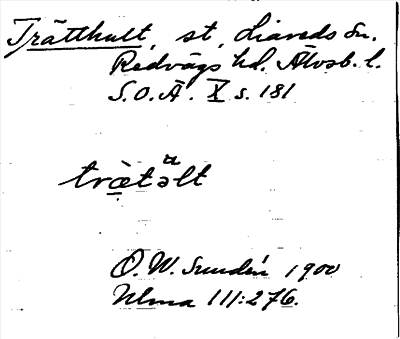 Trätthult, st, Liareds sn.
Redvägs hd. Älvsb. l.
S.O.Ä. X s. 181
træ̀təlt
O.W. Sundén 1900
Ulma 111:276.